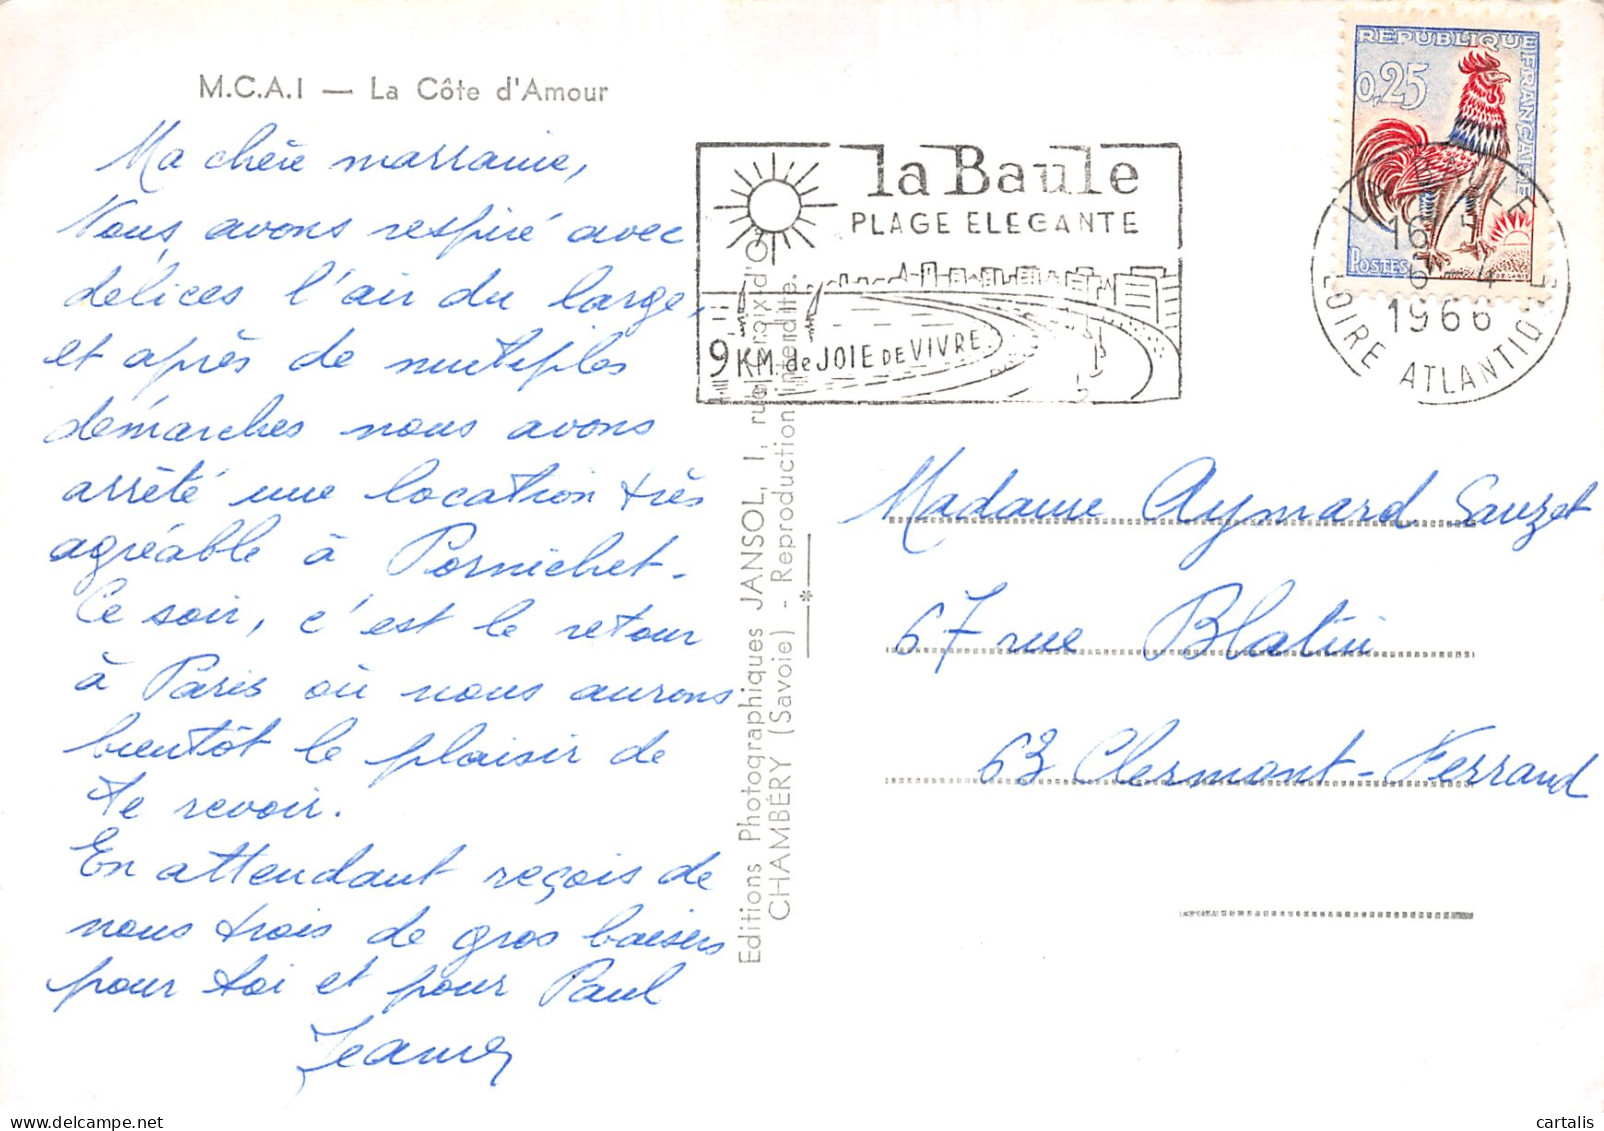 M.C.A.I — La Côte d'Amour
Ma chère marraine,
Nous avons respiré avec
délices l'air du large,
et après de multiples
démarches nous avons
arrêté une location très
agréable à Pornichet.
Ce soir, c'est le retour
à Paris où nous aurons
bientôt le plaisir de
te revoir.
En attendant reçois de
nous trois de gros baisers
pour toi et pour Paul
Editions Photographiques JANSOL, 1, rue Croix d'Or
CHAMBÉRY (Savoie) - Reproduction interdite.
la Baule
PLAGE ELEGANTE
9 KM. de JOIE DE VIVRE
REPUBLIQUE FRANÇAISE
0,25
POSTES
LA BAULE
16 H
6 - 4
1966
LOIRE ATLANTIQUE
Madame Aymard Sauzet
67 rue Blatin
63 Clermont-Ferrand
cartalis
www.delcampe.net